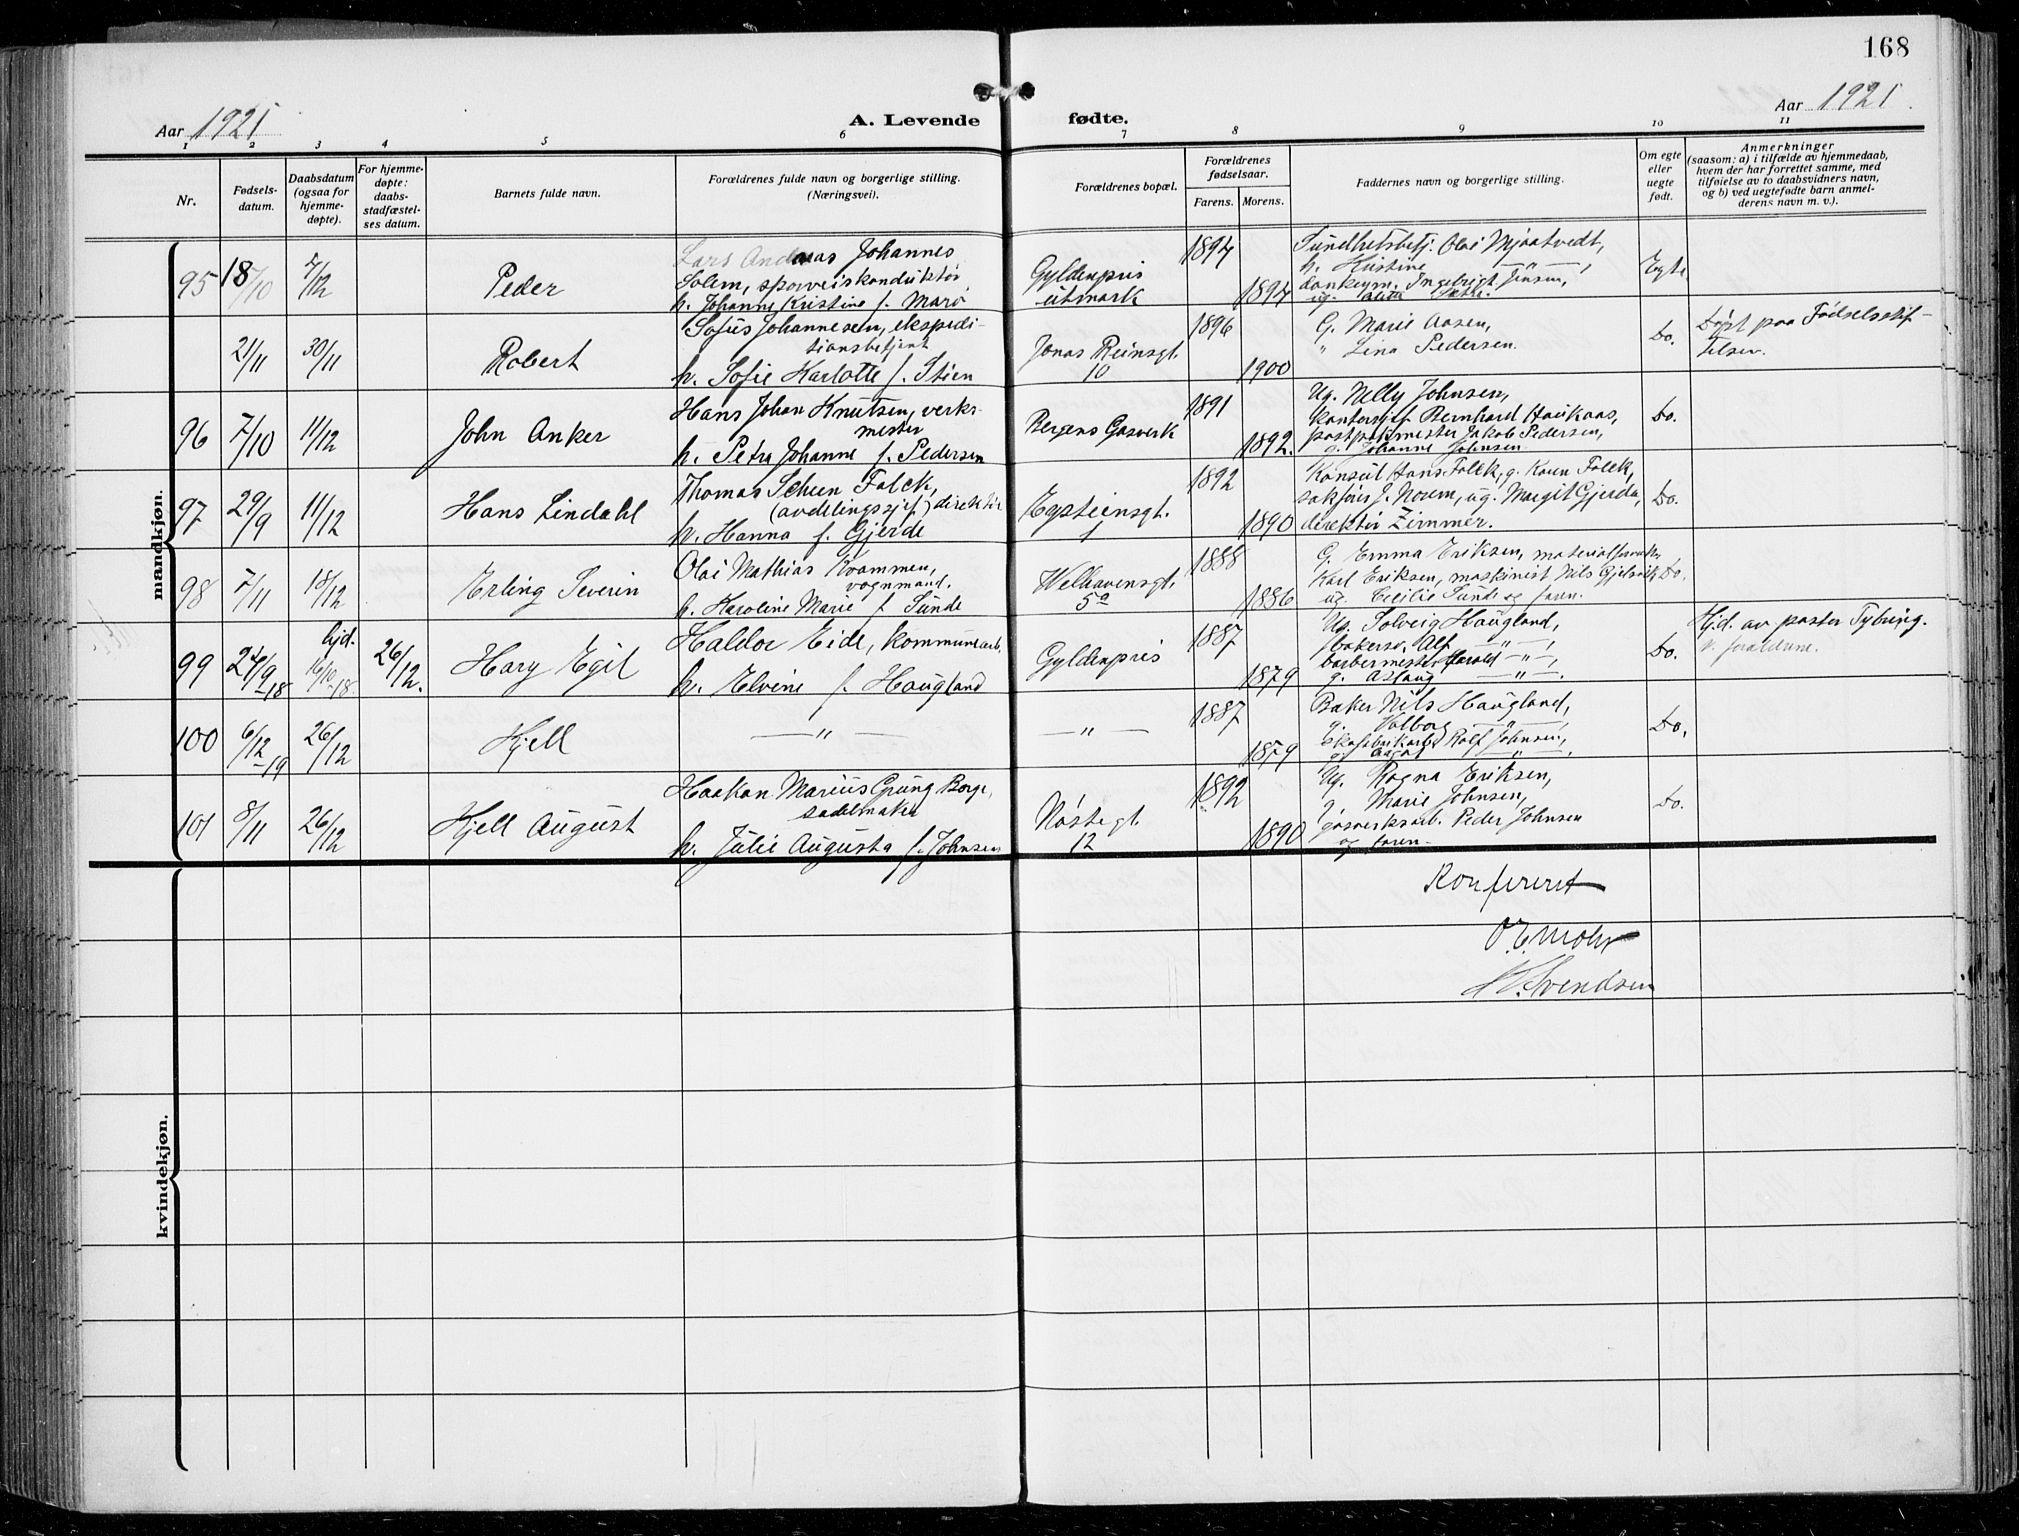 168
Aar 1921
A. Levende fødte.
Aar 1921.
1 2 3 4 5 6 7 8 9 10 11
Nr.
Fødsels-
datum.
Daabsdatum
(ogsaa for
hjemme-
døpte).
For hjemme-
døpte:
daabs-
stadfæstel-
ses datum.
Barnets fulde navn.
Forældrenes fulde navn og borgerlige stilling.
(Næringsvei).
Forældrenes bopæl.
Forældrenes
fødselsaar.
Farens. Morens.
Faddernes navn og borgerlige stilling.
Om egte
eller
uegte
født.
Anmerkninger
(saasom: a) i tilfælde av hjemmedaab,
hvem der har forrettet samme, med
tilføielse av to daabsvidners navn,
og b) ved uegtefødte barn anmel-
derens navn m. v.).
mandkjøn.
95 18/10 4/12 Peder
Lars Andreas Johannes
Solem, sporveiskonduktør,
h. Johanne Kristine f. Marø
Gyldenpris
utmark
1894
1894
Sundhetsbetj. Olai Mjaatvedt,
h. Kristine —"—,
dankeym. Ingebrigt Jensen,
Egte
21/11 30/11 Robert
Sofus Johannesen, ekspedi-
tionsbetjent
h. Sofie Karlotte f. Stien
Jonas Reinsgt.
10
1896
1900
G. Marie Aasen,
" Lina Pedersen.
Do.
Døpt paa Fødselsstif-
telsen.
96 7/10 11/12 John Anker
Hans Johan Knutsen, verks-
mester
h. Petra Johanne f. Pedersen
Bergens Gasverk
1891
1892.
Ug. Nelly Johnsen,
kontorsjef Bernhard Haukaas,
postpakmester Jakob Pedersen,
g. Johanne Johnsen
Do.
97 29/9 11/12 Hans Lindahl
Thomas Scheen Falck,
(avdelingssjef) direktør
h. Hanna f. Gjerde
Epsteinsgt.
1
1892
1890
Konsul Hans Falck, g. Karen Falck,
sakfører J. Noum, ug. Margit Gjerde,
direktør Zimmer.
Do.
98 7/11 18/12 Erling Severin
Olai Mathias Kvammen,
vognmand.
h. Karoline Marie f. Sunde
Welhavensgt.
5a
1888
1886
G. Emma Eriksen, materialforvalter
Karl Eriksen, maskinist Nils Gjelsvik
ug. Cecilie Sunde og faren.
Do.
99 24/9-18 hjd. 16/10-18 26/12. Hary Egil
Haldor Eide, kommunearb.
h. Elvine f. Haugland
Gyldenpris
1887
1879
Ug. Solveig Haugland,
bakersv. Alf —"—,
barbermester Harald —"—,
g. Aslaug —"—.
Do.
Hjd. av pastor Tybring.
v. forældrene.
100 6/12-19 26/12 Kjell
—"—
—"—
1887
1879
Baker Nils Haugland,
g. Valborg —"—,
skofabrikarb. Rolf Johnsen,
Do.
101 8/11 26/12 Kjell August
Haakon Marius Grung Borge,
sadelmaker
h. Julie Augusta f. Johnsen
Nøstegt.
12
1892
1890
Ug. Ragna Eriksen,
g. Marie Johnsen,
gasverksarb. Peder Johnsen
og faren.
Do.
Konfereret
O E Mohr
K. Svendsen
kvindekjøn.